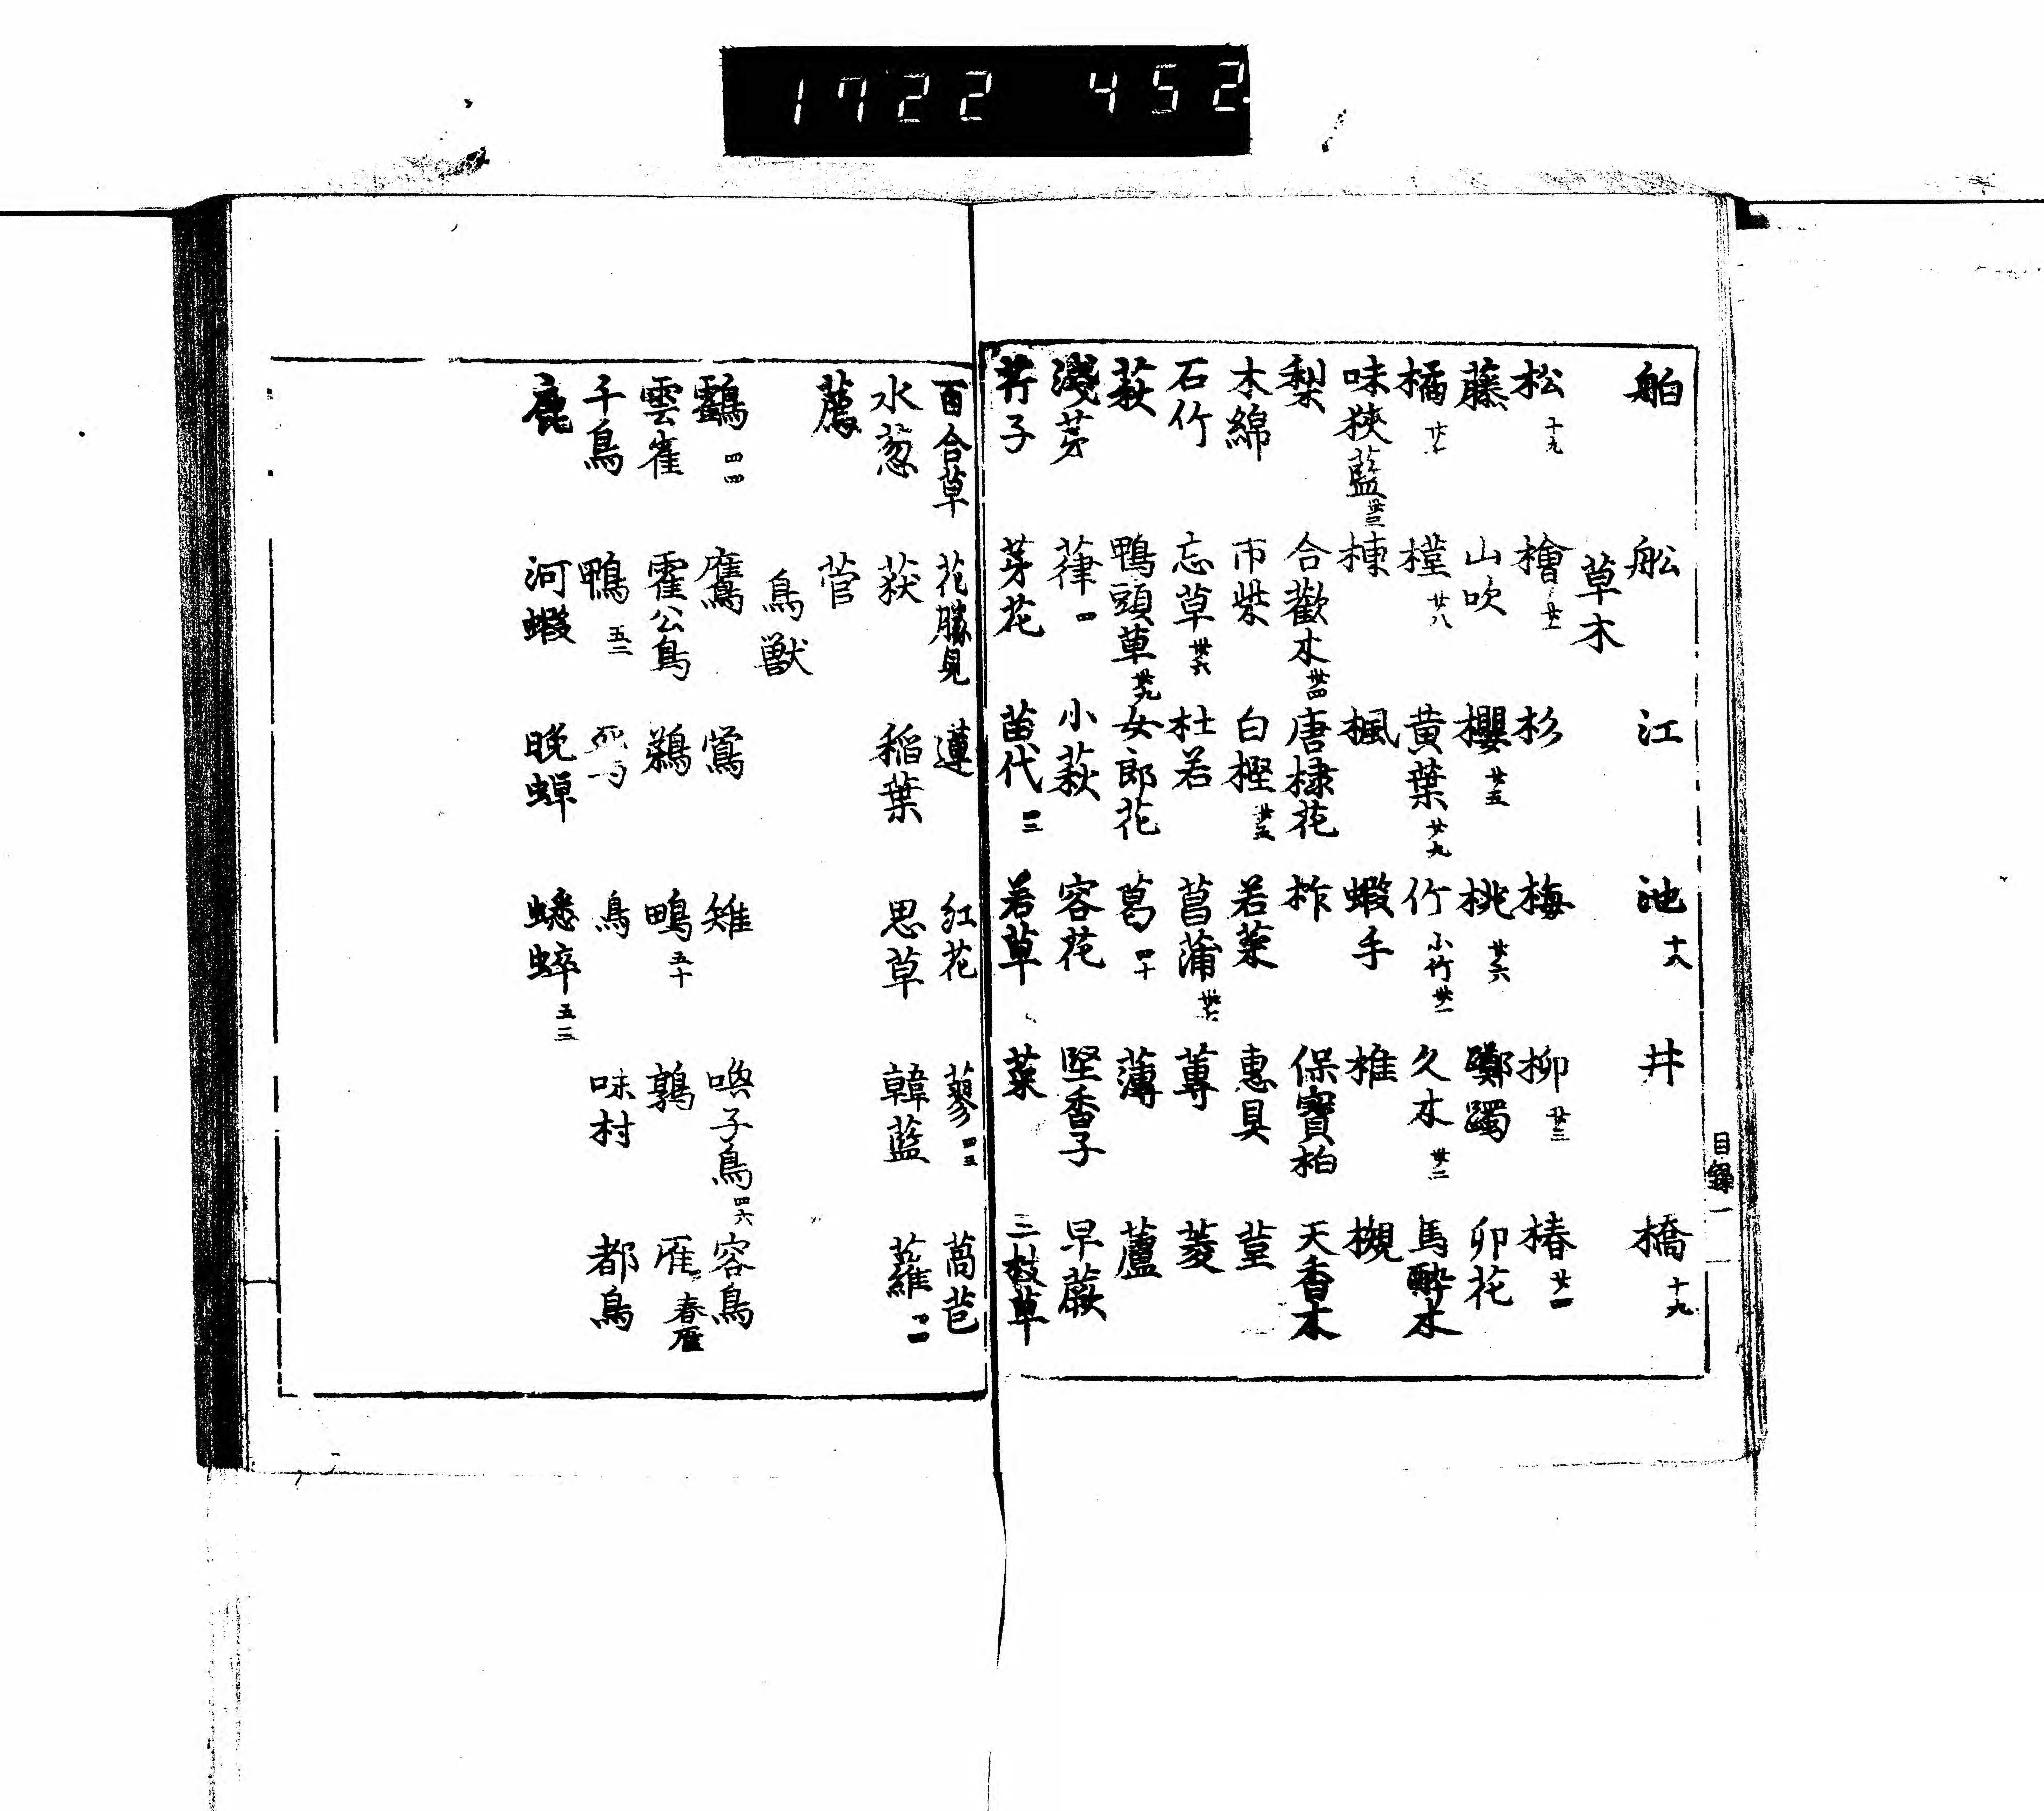 1722 452
舶 舩 江 池十八 井 橋十九
草木
松十九 檜 杉 梅 柳廿三 椿廿一
藤 山吹 櫻廿五 桃廿六 躑躅 卯花
橘廿七 樒廿八 黄葉廿九 竹小竹丗一 久木丗二 馬酔木
味狭藍丗三 楝 楓 蝦手 椎 槻
梨 合歡木丗四 唐棣花 柞 保寳柏 天香木
木綿 市柴 白樫丗五 若菜 惠具 菫
石竹 忘草丗六 杜若 菖蒲丗七 蓴 菱
萩 鴨頭草丗九 女郎花 葛四十 薄 蘆
淺茅 葎 小萩 容花 堅香子 早蕨
芽花 苗代 若草 菜 三枝草
目録一
百合草 花勝見 蓮 紅花 蓼四五 萵苣
水葱 荻 稲葉 思草 韓藍 蘿
薦 菅
鳥獣
鶴四四 鷹 鴬 雉 喚子鳥四六 容鳥
雲雀 霍公鳥 鵜 鴫五十 鶉 雁春雁
千鳥 鴨五二 鳥 味村 都鳥
鹿 河蝦 晩蝉 蟋蟀五三